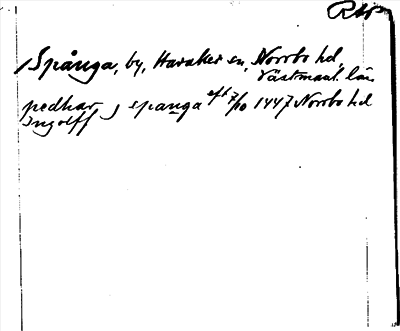 Spånga, by, Haraker sn, Norrbo hd,
Västmanl. län
pedhar j spanga eft 7/10 1447 Norrbo hd
Ingolff